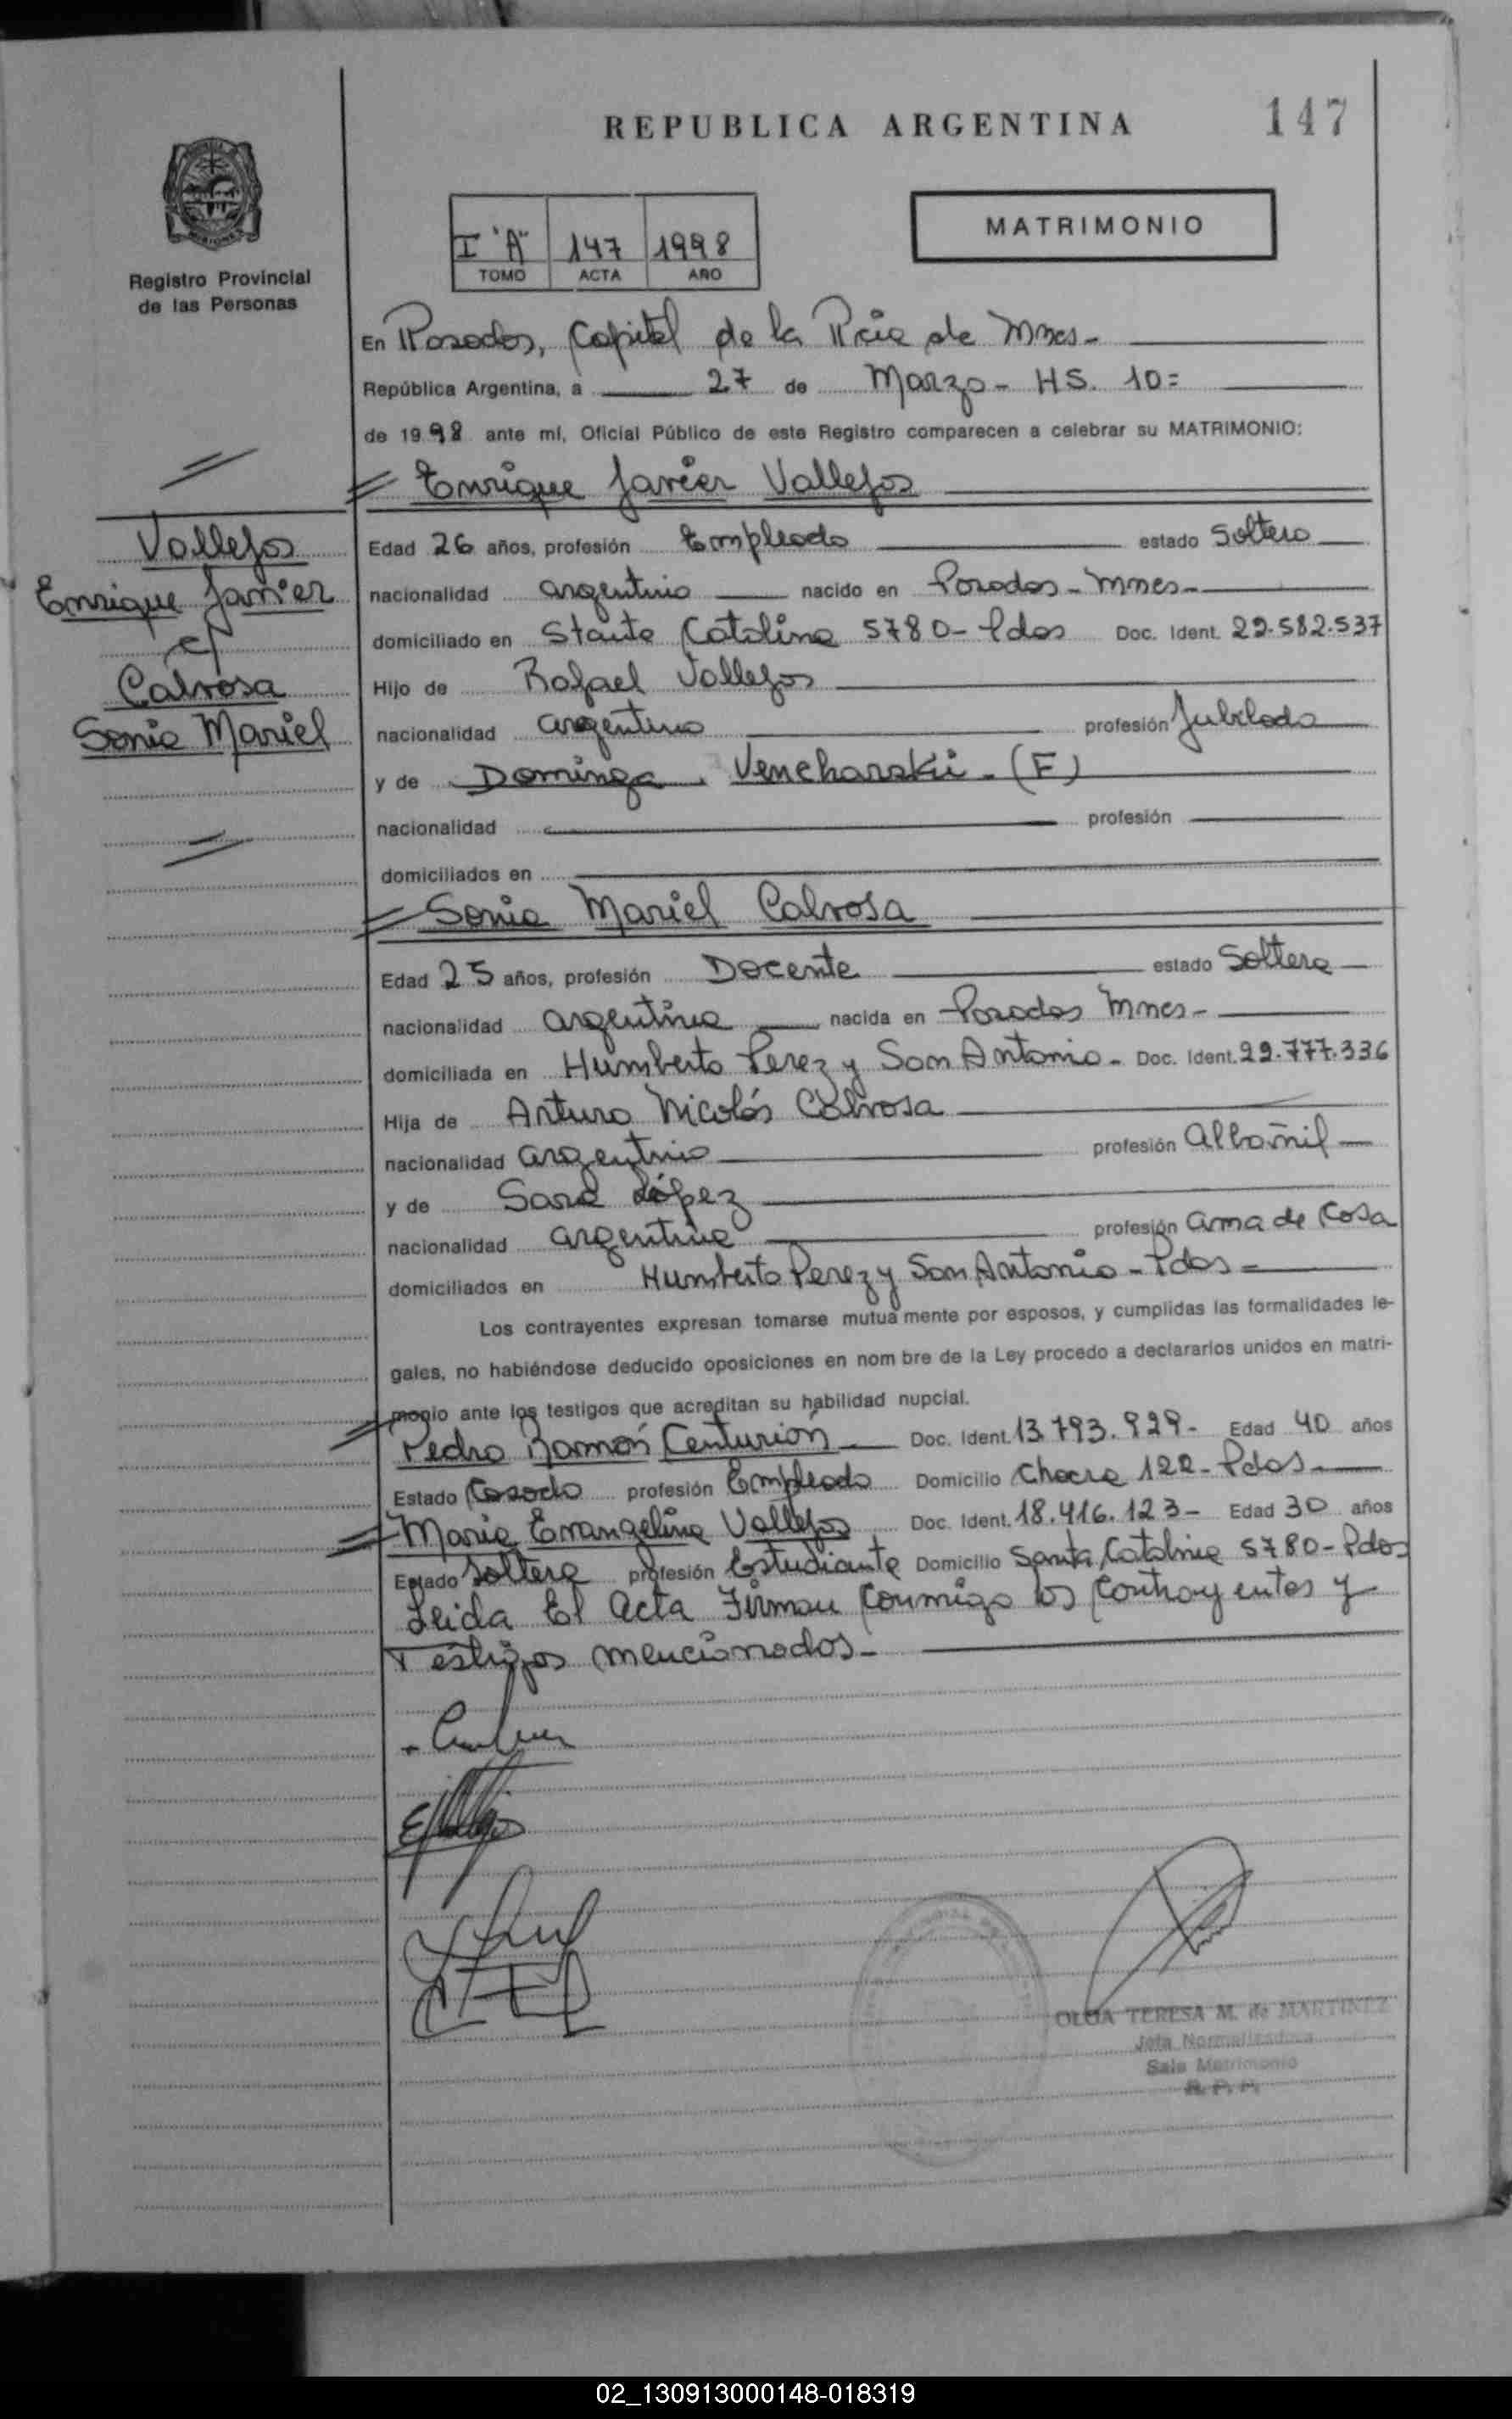 REPUBLICA ARGENTINA
147
I "A" 147 1998
TOMO ACTA AÑO
MATRIMONIO
Registro Provincial
de las Personas
En Posadas, Capital de la Pcia de Mnes-
República Argentina, a 27 de Marzo- HS. 10=
de 1998 ante mí, Oficial Público de este Registro comparecen a celebrar su MATRIMONIO:
Enrique Javier Vallejos
Vallejos
Enrique Javier
c/
Calrosa
Sonia Mariel
Edad 26 años, profesión Empleado estado Soltero
nacionalidad argentino nacido en Posadas-Mnes-
domiciliado en Stauta Catalina 5780-Pdas Doc. Ident. 22.582.537
Hijo de Rafael Vallejos
nacionalidad argentino profesión Jubilado
y de Dominga Vencharski-(F)
nacionalidad profesión
domiciliados en
Sonia Mariel Calrosa
Edad 25 años, profesión Docente estado Soltera
nacionalidad argentina nacida en Posadas Mnes-
domiciliada en Humberto Perez y San Antonio- Doc. Ident. 22.777.336
Hija de Arturo Nicolás Calrosa
nacionalidad argentino profesión Albañil
y de Sara López
nacionalidad argentina profesión ama de Casa
domiciliados en Humberto Perez y San Antonio-Pdas=
Los contrayentes expresan tomarse mutua mente por esposos, y cumplidas las formalidades le-
gales, no habiéndose deducido oposiciones en nom bre de la Ley procedo a declararlos unidos en matri-
monio ante los testigos que acreditan su habilidad nupcial.
Pedro Ramón Centurión Doc. Ident. 13.793.929- Edad 40 años
Estado Casado profesión Empleado Domicilio Chacra 122-Pdas-
Maria Evangelina Vallejos Doc. Ident. 18.416.123- Edad 30 años
Estado Soltera profesión Estudiante Domicilio Santa Catalina 5780-Pdas
Leida El acta Firman conmigo los contrayentes y
Testigos mencionados-
OLGA TERESA M. de MARTINEZ
Jefa Normalizadora
Sala Matrimonio
R. P. P.
02_130913000148-018319